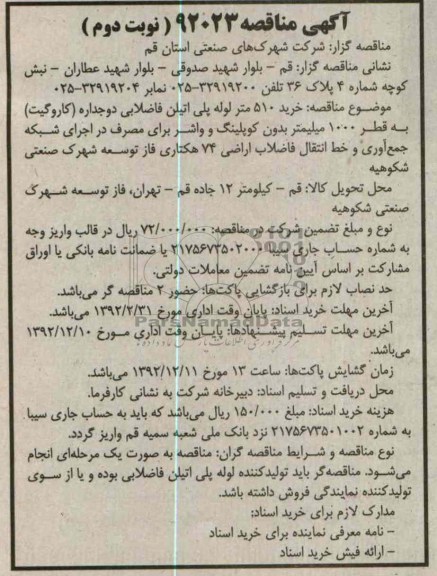 آگهی مناقصه ۹۲۰۲۳ ( نوبت دوم )
مناقصه گزار: شرکت شهرک‌های صنعتی استان قم
نشانی مناقصه گزار: قم - بلوار شهید صدوقی - بلوار شهید عطاران - نبش
کوچه شماره ۴ پلاک ۳۶ تلفن ۳۲۹۱۹۲۰۰-۰۲۵ نمابر ۳۲۹۱۹۲۰۴-۰۲۵
موضوع مناقصه: خرید ۵۱۰ متر لوله پلی اتیلن فاضلابی دوجداره (کاروگیت)
به قطر ۱۰۰۰ میلیمتر بدون کوپلینگ و واشر برای مصرف در اجرای شبکه
جمع‌آوری و خط انتقال فاضلاب اراضی ۷۴ هکتاری فاز توسعه شهرک صنعتی
شکوهیه
محل تحویل کالا: قم - کیلومتر ۱۲ جاده قم - تهران، فاز توسعه شهرک
صنعتی شکوهیه
نوع و مبلغ تضمین شرکت در مناقصه: ۷۲/۰۰۰/۰۰۰ ریال در قالب واریز وجه
به شماره حساب جاری سیبا ۲۱۷۵۶۷۳۵۰۲۰۰۰ یا ضمانت نامه بانکی یا اوراق
مشارکت بر اساس آیین نامه تضمین معاملات دولتی.
حد نصاب لازم برای بازگشایی پاکت‌ها: حضور ۲ مناقصه گر می‌باشد.
آخرین مهلت خرید اسناد: پایان وقت اداری مورخ ۱۳۹۲/۲/۳۱ می‌باشد.
ParsNamadData
آخرین مهلت تسلیم پیشنهادها: پایان وقت اداری مورخ ۱۳۹۲/۱۲/۱۰
می‌باشد.
زمان گشایش پاکت‌ها: ساعت ۱۳ مورخ ۱۳۹۲/۱۲/۱۱ می‌باشد.
محل دریافت و تسلیم اسناد: دبیرخانه شرکت به نشانی کارفرما.
هزینه خرید اسناد: مبلغ ۱۵۰/۰۰۰ ریال می‌باشد که باید به حساب جاری سیبا
به شماره ۲۱۷۵۶۷۳۵۰۱۰۰۲ نزد بانک ملی شعبه سمیه قم واریز گردد.
نوع مناقصه و شرایط مناقصه گران: مناقصه به صورت یک مرحله‌ای انجام
می‌شود. مناقصه‌گر باید تولیدکننده لوله پلی اتیلن فاضلابی بوده و یا از سوی
تولیدکننده نمایندگی فروش داشته باشد.
مدارک لازم برای خرید اسناد:
- نامه معرفی نماینده برای خرید اسناد
- ارائه فیش خرید اسناد